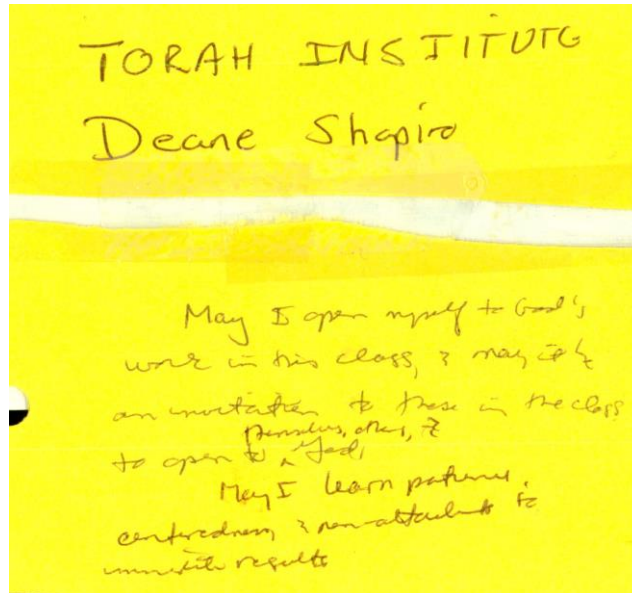 TORAH INSTITUTE
Deane Shapiro
May I open myself to God's
work in this class, & may it be
an invitation to those in the class
themselves, others, &
to open to ^ God,
May I learn patience,
centeredness & non attachment to
immediate results